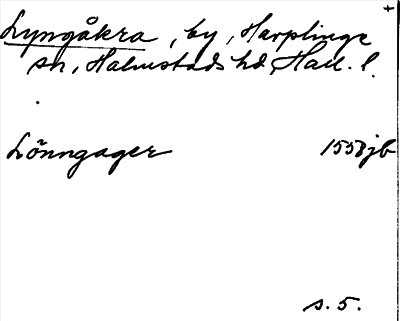 Lyngåkra, by, Harplinge
sn, Halmstads hd, Hall. l.
Lõnngager 1558 jb
s. 5.